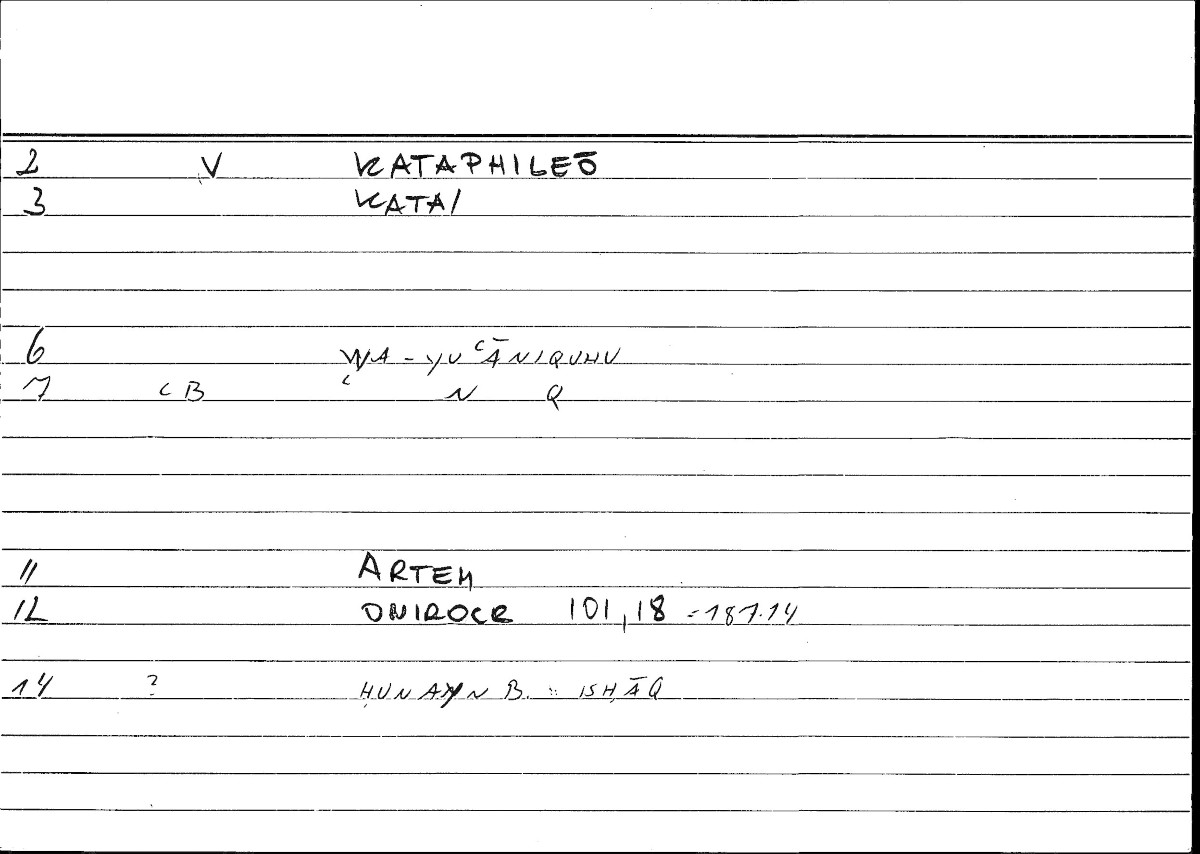 2 V KATAPHILEŌ
3 KATA/
6 WA-YUʿĀNIQUHU
7 ʿB ʿ N Q
11 ARTEM
12 ONIROCR 101,18 =187.14
14 ? ḤUNAYN B. ISḤĀQ